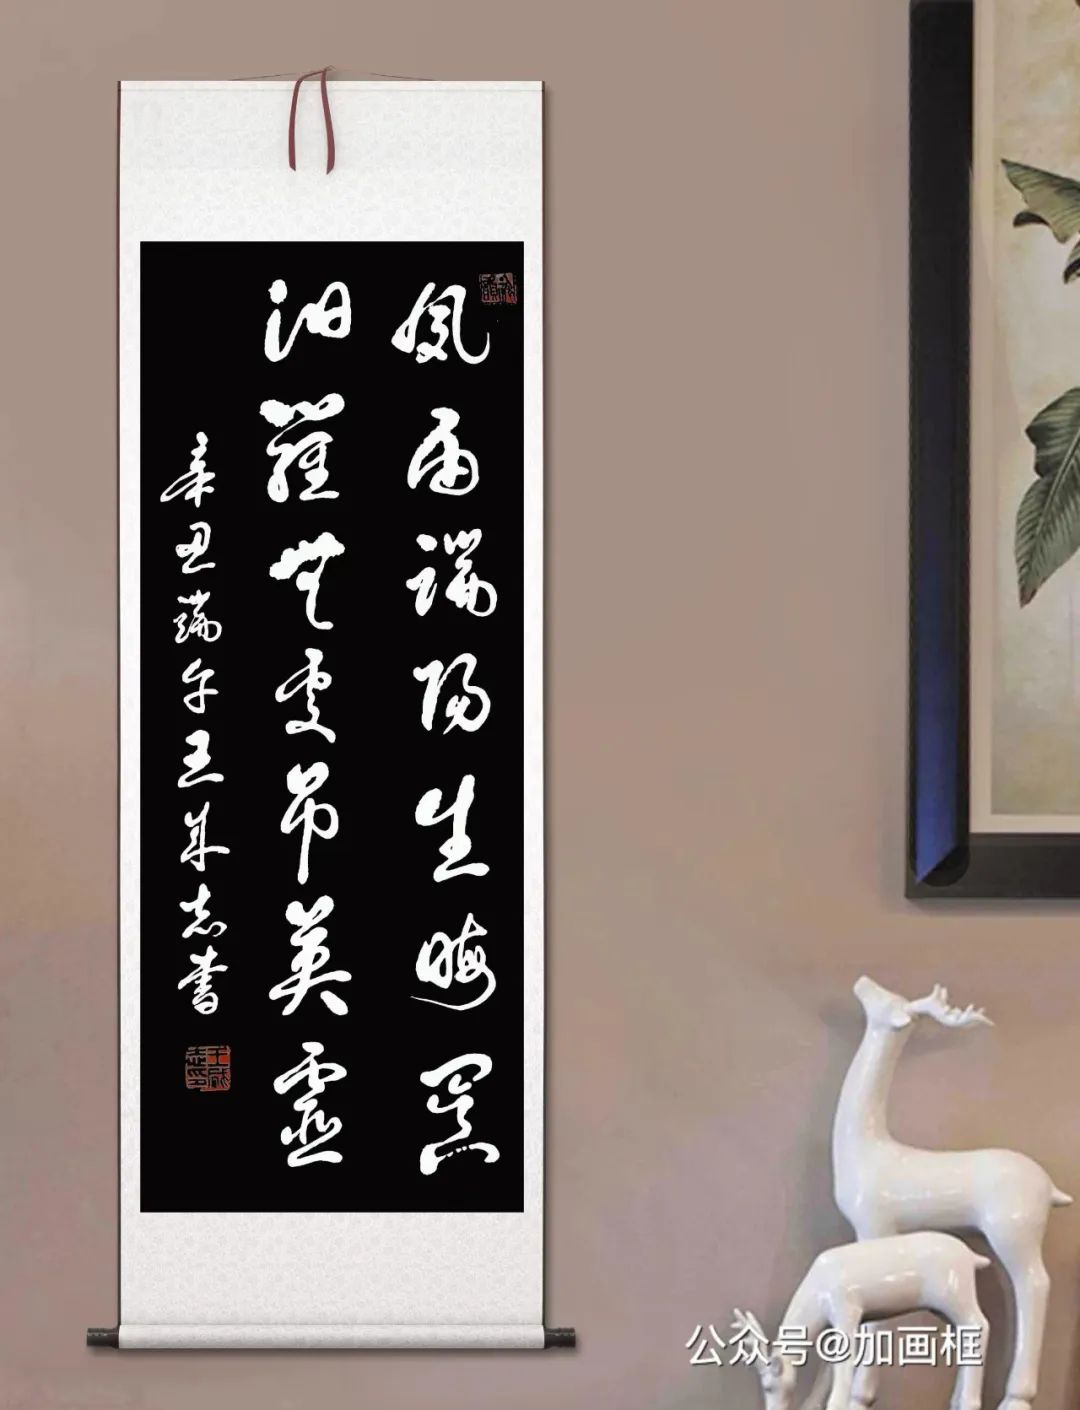 風雨端陽生晦冥
汨羅無處吊英靈
辛丑端午王成志書
王成志印
公众号@加画框